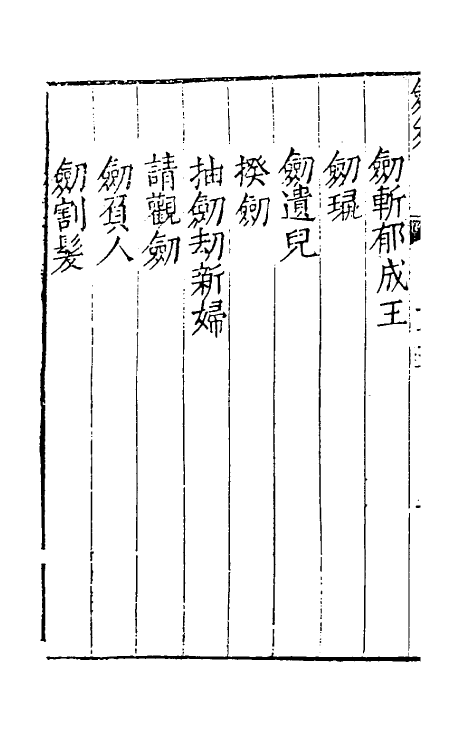 劒斬郁成王
劒璏
劒遺兒
揆劒
抽劒刧新婦
請觀劒
劒頂人
劒割髪